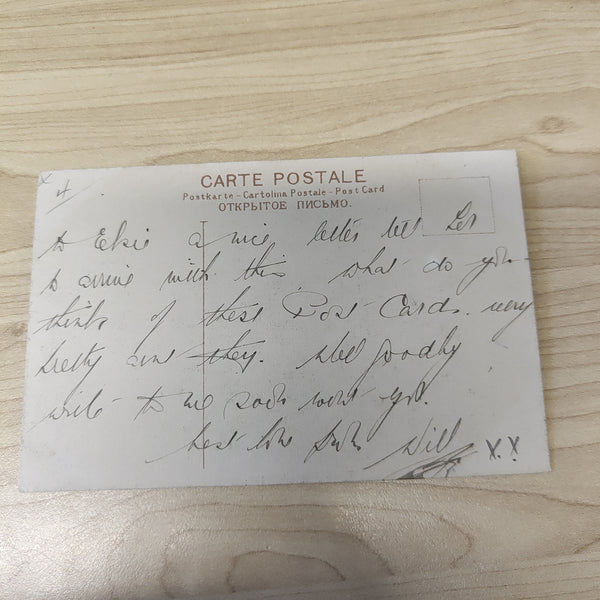 x 4.
CARTE POSTALE
Postkarte - Cartolina Postale - Post Card
ОТКРЫТОЕ ПИСЬМО.
to Elsie a nice letter tell her
to arive with this what do you
think of these Post Cards. very
pretty aint they. Well goodby
write to me soon wont you.
best love from Will X.X